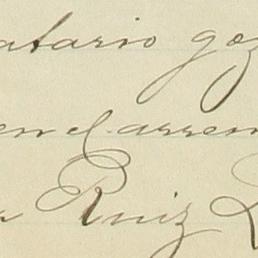 atario goz
en el arren
Ruiz